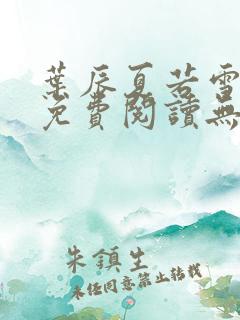 葉辰夏若雪
免費閱讀無
朱鎮生
未經同意禁止轉載